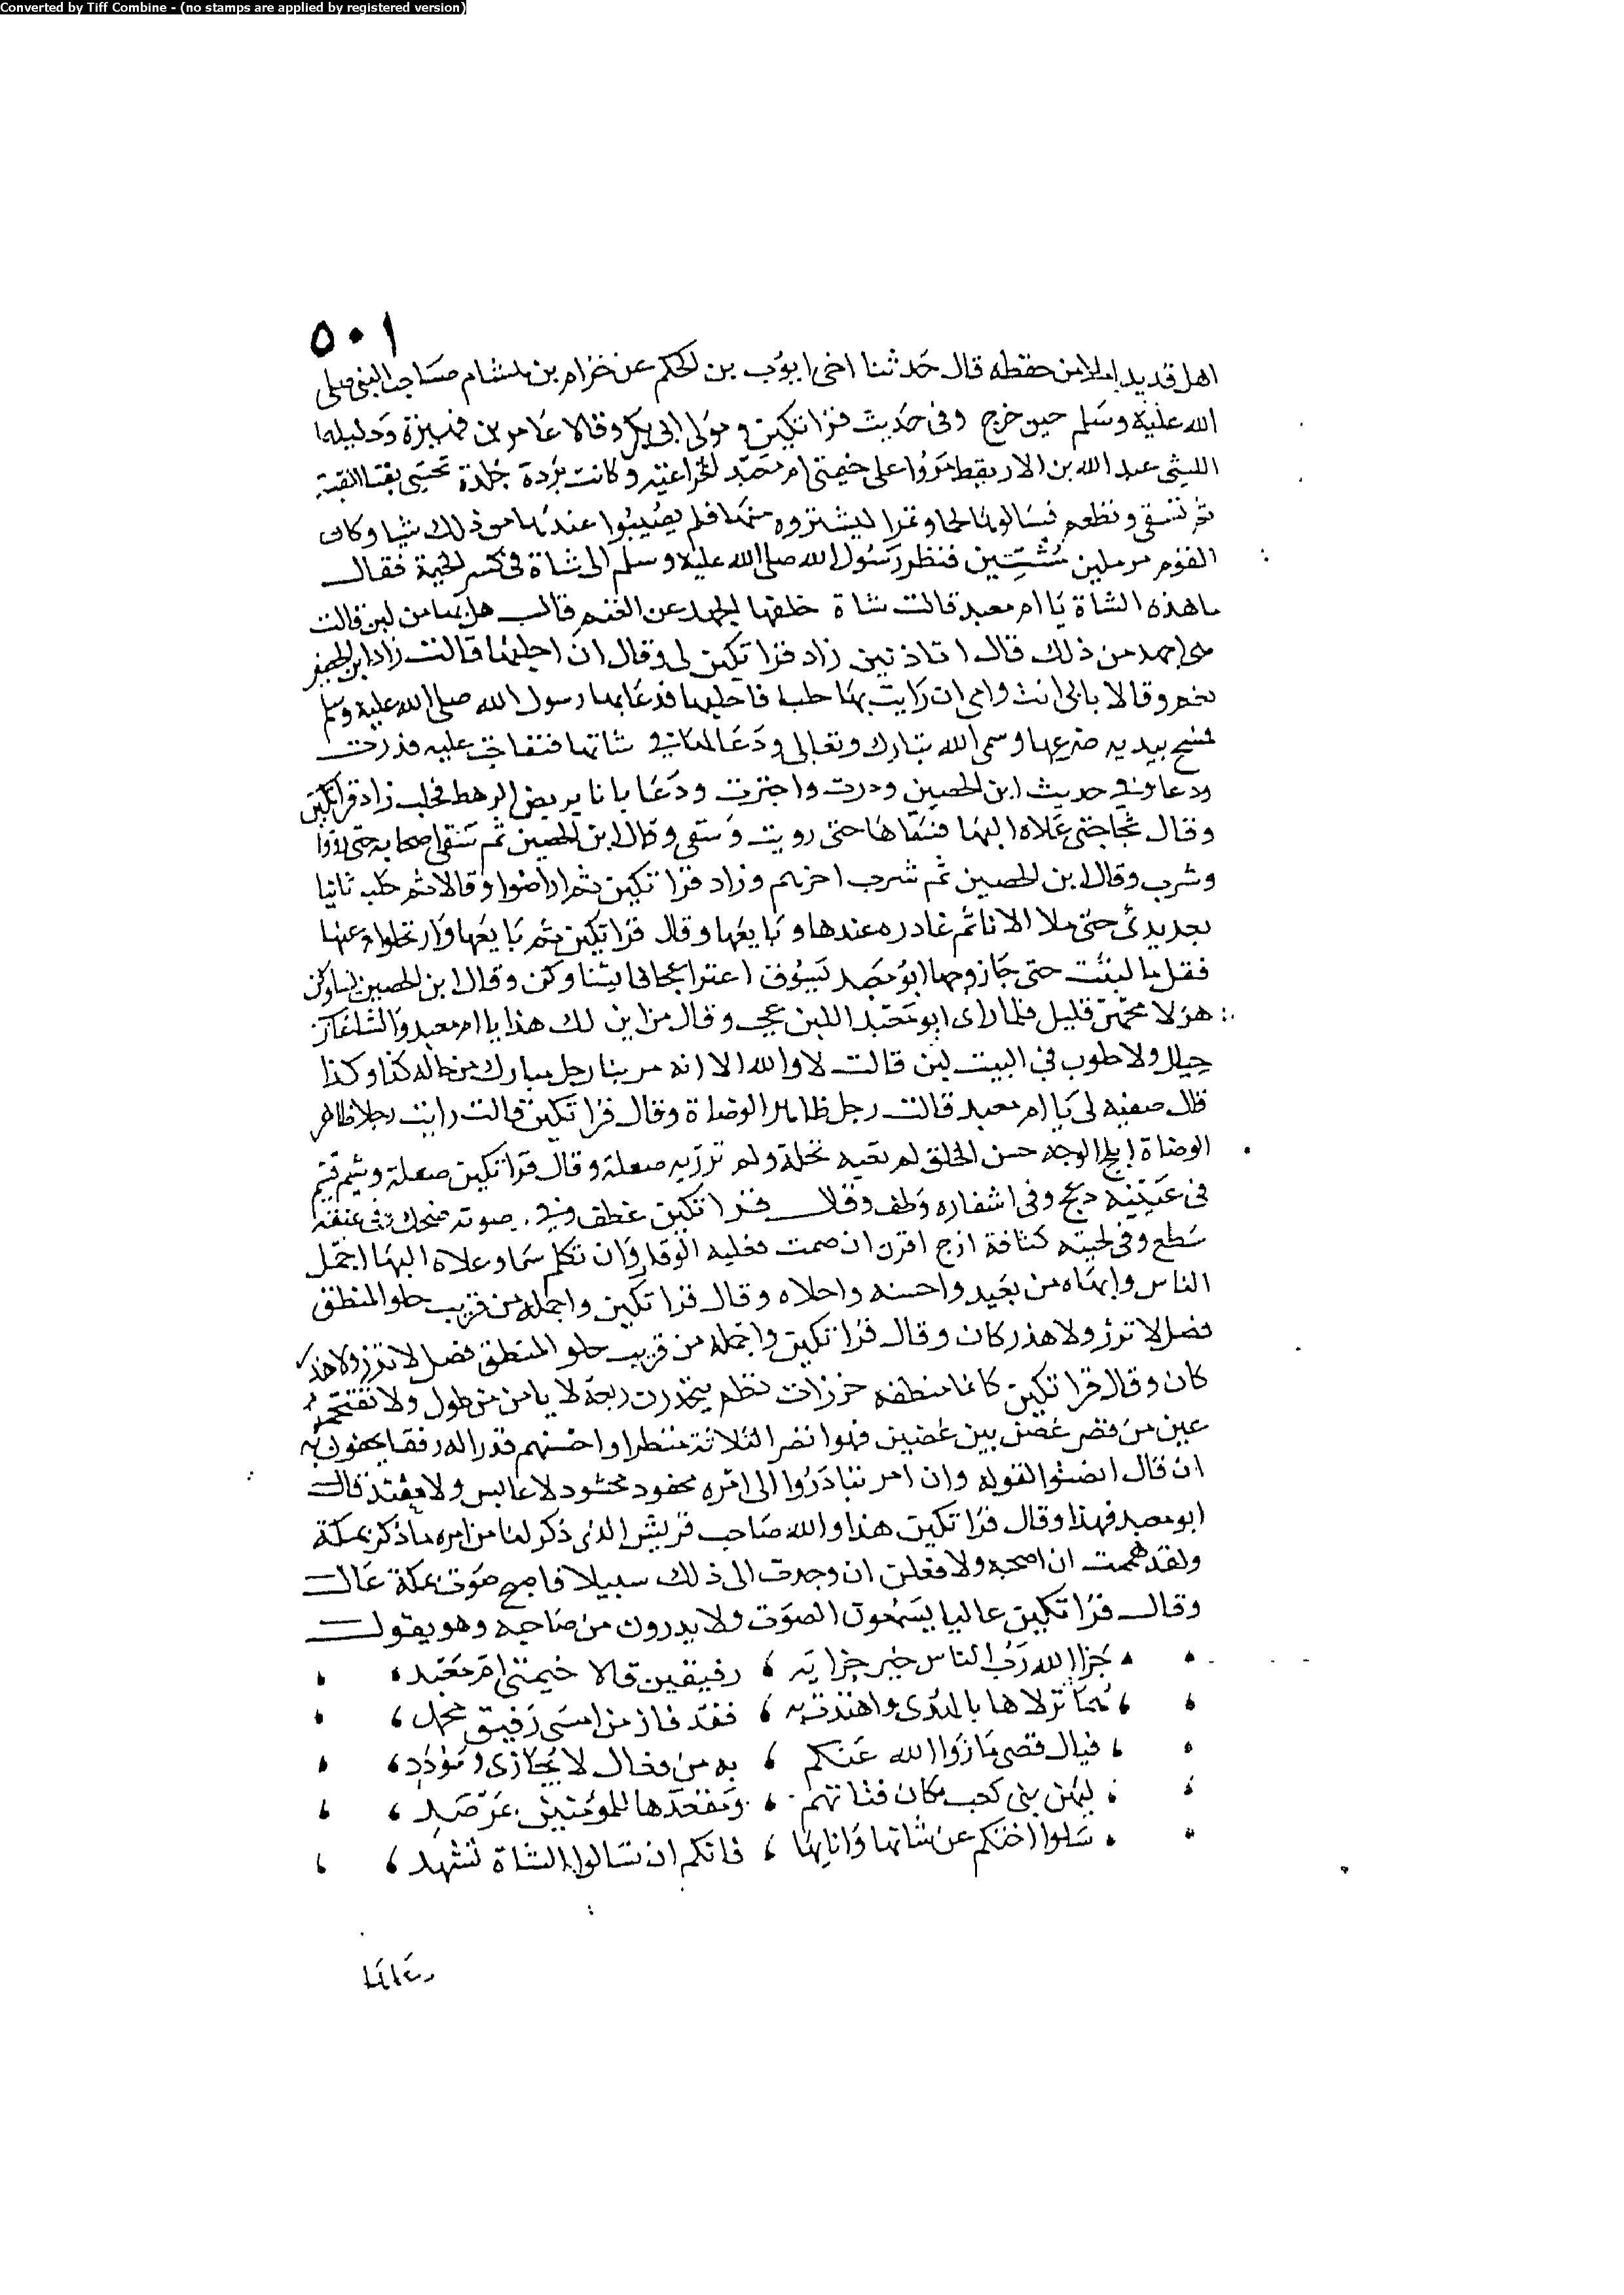 Converted by Tiff Combine - (no stamps are applied by registered version)
٥٠١
اهل قديد املاء من حفظه قال حدثنا اخى ايوب بن الحكم عن خزام بن هشام صاحب النبى صلى
الله عليه وسلم حين خرج وفى حديث قراتكين ومولى ابى بكر وقالا عامر بن فهيرة ودليلهما
الليثى عبد الله بن الاريقط مروا على خيمتى ام معبد الخزاعية وكانت برزة جلدة تحتبى بفنا القبة
ثم تسقى وتطعم فسالوها لحما وتمرا ليشتروه منها فلم يصيبوا عندها من ذلك شيا وكان
القوم مرملين مشتين فنظر رسول الله صلى الله عليه وسلم الى شاة فى كسر الخيمة فقال
ما هذه الشاة يا ام معبد قالت شاة خلفها الجهد عن الغنم قال هل بها من لبن قالت
هى اجهد من ذلك قال اتاذنين زاد قراتكين لى وقال ان احلبها قالت زاد ابن الحصين
نعم وقالا بابى انت وامى ان رايت بها حلبا فاحلبها فدعا بها رسول الله صلى الله عليه وسلم
فمسح بيديه ضرعها وسمى الله تبارك وتعالى ودعا لها فى شاتها فتفاجت عليه فدرت
ودعا وفى حديث ابن الحصين ودرت واجترت ودعا بانا يربض الرهط فحلب زاد قراتكين
وقال ثجا حتى علاه البها فسقاها حتى رويت وسقى وقال ابن الحصين ثم سقى اصحابه حتى رووا
وشرب وقال ابن الحصين ثم شرب اخرهم وزاد قراتكين ثم اراضوا وقالا ثم حلب ثانيا
بعد بدئ حتى ملا الانا ثم غادره عندها وبايعها وقال قراتكين ثم بايعها وارتحلوا عنها
فقل ما لبثت حتى جا زوجها ابو معبد يسوق اعنزا عجافا يتساوكن وقال ابن الحصين تساوكن
هزلا مخهن قليل فلما راى ابو معبد اللبن عجب وقال من اين لك هذا يا ام معبد والشا عازب
حيال ولا حلوب فى البيت لبن قالت لا والله الا انه مر بنا رجل مبارك من حاله كذا وكذا
قال صفيه لى يا ام معبد قالت رجل ظاهر الوضاة وقال قراتكين قالت رايت رجلا ظاهر
الوضاة ابلج الوجه حسن الخلق لم تعبه نحلة ولم تزر به صعلة وقال قراتكين صعلة وسيم قسيم
فى عينيه دعج وفى اشفاره وطف وقال قراتكين غطف وفى صوته صحل وفى عنقه
سطع وفى لحيته كثافة ازج اقرن ان صمت فعليه الوقار وان تكلم سما وعلاه البها اجمل
الناس وابهاه من بعيد واحسنه واحلاه وقال قراتكين واجمله من قريب حلو المنطق
فصل لا نزر ولا هذر كان وقال قراتكين واجمله من قريب حلو المنطق فصل لا نزر ولا هذر
كان وقال قراتكين كانما منطقه خرزات نظم يتحدرن ربعة لا يا من من طول ولا تقتحمه
عين من قصر غصن بين غصنين فهوا نضر الثلاثة منظرا واحسنهم قدرا له رفقا يحفون به
ان قال انصتوا لقوله وان امر تبادروا الى امره محفود محشود لا عابس ولا مفند قال
ابو معبد فهذا وقال قراتكين هذا والله صاحب قريش الذى ذكر لنا من امره ما ذكر بمكة
ولقد هممت ان اصحبه ولافعلن ان وجدت الى ذلك سبيلا فاصبح صوت بمكة عال
وقال قراتكين عاليا يسمعون الصوت ولا يدرون من صاحبه وهو يقول
جزا الله رب الناس خير جزايه ، رفيقين قالا خيمتى ام معبد
هما نزلاها بالهدى واهتدت به ، فقد فاز من امسى رفيق محمد
فيال قصى ما زوا الله عنكم ، به من فعال لا يجازى وسؤدد
ليهن بنى كعب مكان فتاتهم ، ومقعدها للمومنين بمرصد
سلوا اختكم عن شاتها وانايها ، فانكم ان تسالوا الشاة تشهد